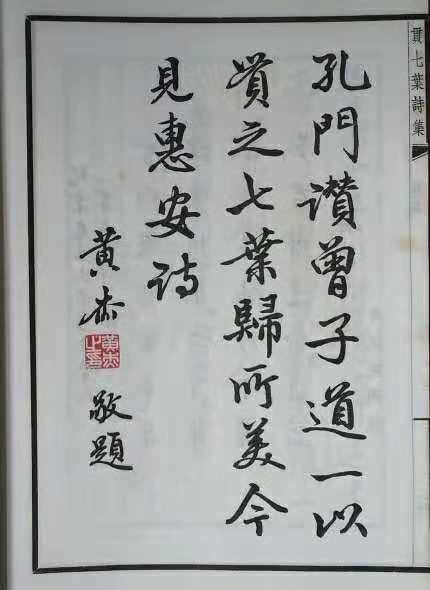 貫七葉詩集
孔門讚曾子道一以
貫之七葉歸所美今
見惠安詩
黃杰 敬題
黃杰之印